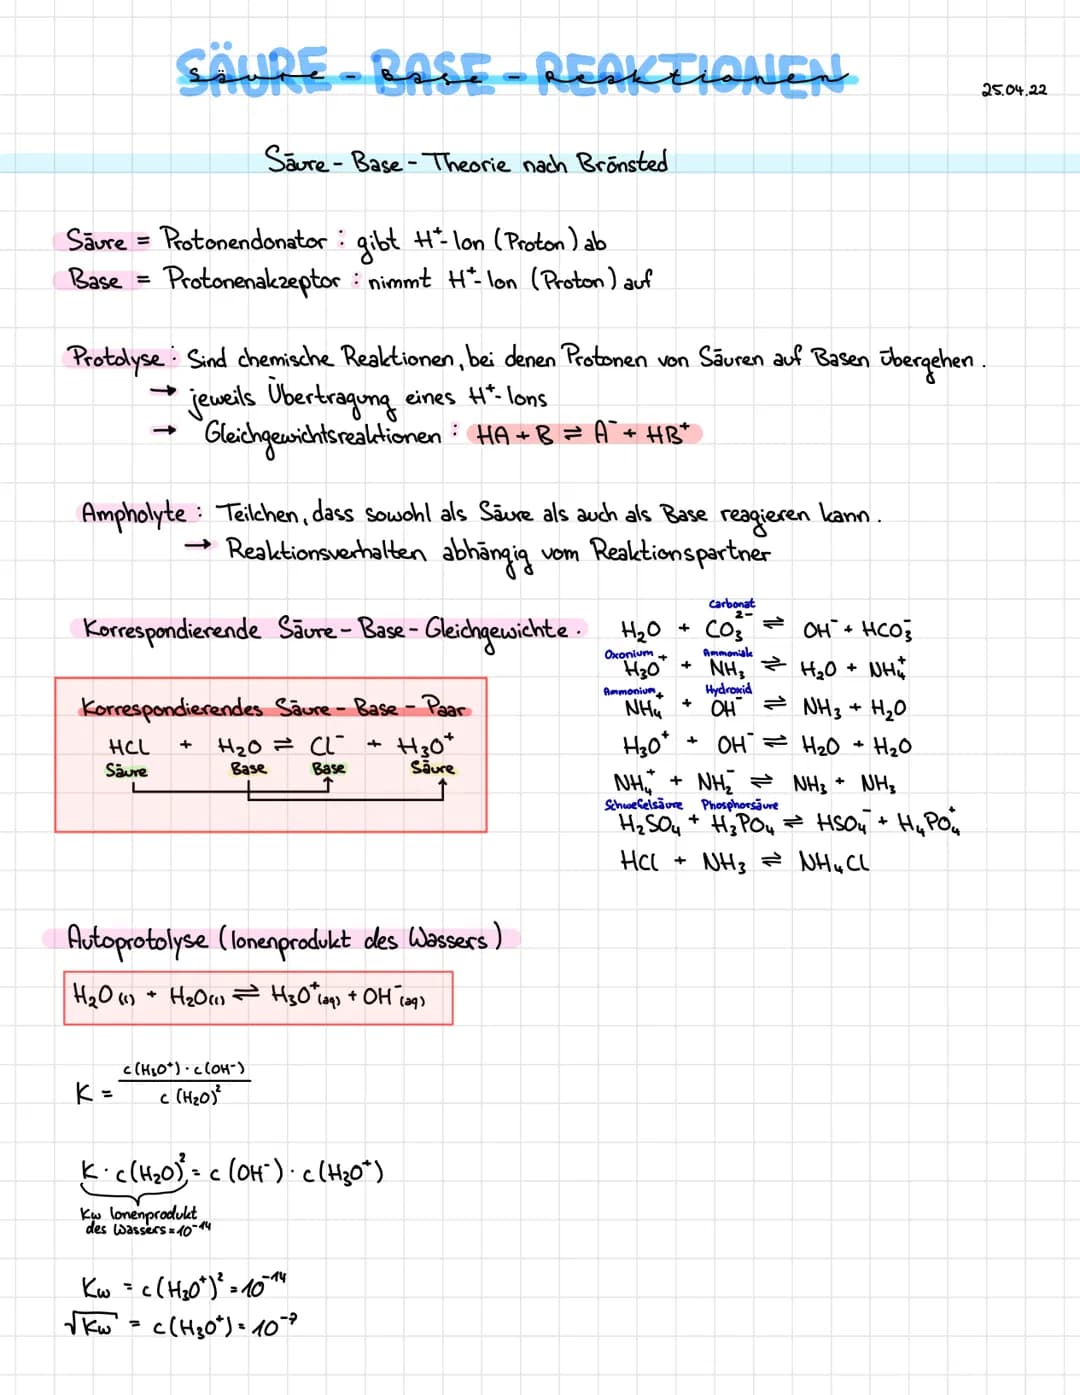 SÄURE - BASE - REAKTIONEN
Säure - Base - Reaktionen
25.04.22
Säure - Base - Theorie nach Brönsted
Säure = Protonendonator : gibt H⁺- Ion (Proton) ab
Base = Protonenakzeptor : nimmt H⁺- Ion (Proton) auf
Protolyse : Sind chemische Reaktionen, bei denen Protonen von Säuren auf Basen übergehen.
→ jeweils Übertragung eines H⁺- Ions
→ Gleichgewichtsreaktionen : HA + B ⇌ A⁻ + HB⁺
Ampholyte : Teilchen, dass sowohl als Säure als auch als Base reagieren kann.
→ Reaktionsverhalten abhängig vom Reaktionspartner
Korrespondierende Säure - Base - Gleichgewichte.
Korrespondierendes Säure - Base - Paar
HCL + H₂O ⇌ Cl⁻ + H₃O⁺
Säure Base Base Säure
Carbonat
H₂O + CO₃²⁻ ⇌ OH⁻ + HCO₃⁻
Oxonium Ammoniak
H₃O⁺ + NH₃ ⇌ H₂O + NH₄⁺
Ammonium Hydroxid
NH₄⁺ + OH⁻ ⇌ NH₃ + H₂O
H₃O⁺ + OH⁻ ⇌ H₂O + H₂O
NH₄⁺ + NH₂⁻ ⇌ NH₃ + NH₃
Schwefelsäure Phosphorsäure
H₂SO₄ + H₃PO₄ ⇌ HSO₄⁻ + H₄PO₄⁺
HCl + NH₃ ⇌ NH₄Cl
Autoprotolyse (Ionenprodukt des Wassers)
H₂O (l) + H₂O(l) ⇌ H₃O⁺(aq) + OH⁻(aq)
c(H₃O⁺) · c(OH⁻)
K =
c (H₂O)²
K · c(H₂O)² = c (OH⁻) · c(H₃O⁺)
Kw Ionenprodukt
des Wassers = 10⁻¹⁴
Kw = c(H₃O⁺)² = 10⁻¹⁴
√Kw = c(H₃O⁺) = 10⁻⁷